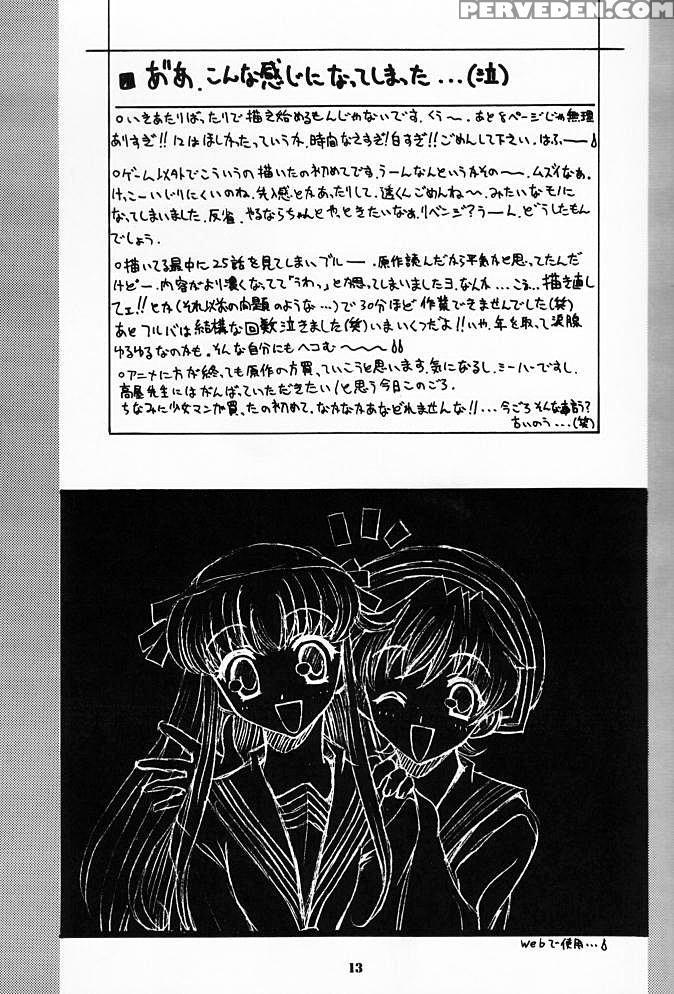 PERVEDEN.COM
おあ、こんな感じになってしまった…(泣)
○いきあたりばったりで描き始めるもんじゃないです。くぅ〜。あと8ページじゃ無理
ありすぎ!! 12はほしかったっていうか、時間なさすぎ!白すぎ!!ごめんして下さい。はふ——
○ゲーム以外でこういうの描いたの初めてです。うーんなんというかその〜。ムズイなあ。
けっこーいじりにくいのね。先入感とかあったりして。透くんごめんね〜。みたいなモノに
なってしまいました。反省。やるならちゃんとやっときたいなぁ。リベンジ?うーん、どうしたもん
でしょう。
○描いてる最中に25話を見てしまい、ブルー——。原作読んだから平気かと思ってたんだ
けどー。内容がより濃くなってて「うわっ」とか思ってしまいましたヨ。なんか…こう…描き直し
てェ!!とか(それ以前の問題のような…)で30分ほど作業できませんでした(笑)
あとフルバは結構な回数泣きました(笑)いまいくつだよ!!いや、年を取って涙腺
ゆるゆるなのかも。そんな自分にもヘコむ〜
○アニメに方が終っても原作の方買っていこうと思います。気になるし。ミーハーですし。
高屋先生にはがんばっていただきたい!と思う今日このごろ。
ちなみに少女マンガ買ったの初めて。なかなかあなどれませんな!!…今ごろそんな事言う?
ちいのう…(笑)
Webで使用…
13